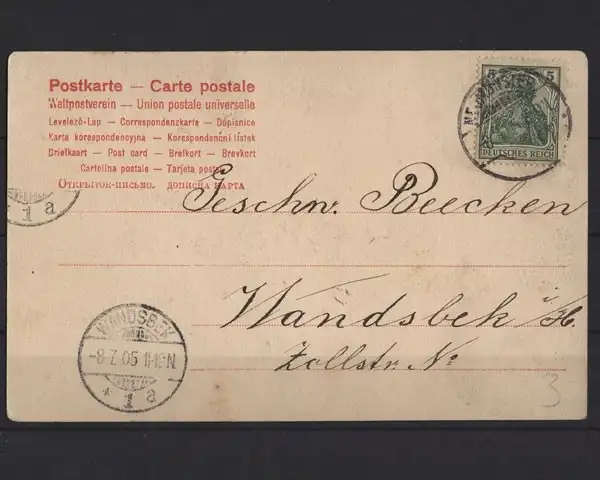 Postkarte — Carte postale
Weltpostverein — Union postale universelle
Levelező-Lap — Correspondenzkarte — Dopisnice
Karta korespondencyjna — Korespondenční lístek
Brielkaart — Post card — Brefkort — Brevkort
Cartolina postale — Tarjeta postal
Открытое письмо. дописна карта
5 5
DEUTSCHES REICH
1 a
Geschw. Beecken
Wandsbek i/H.
Zollstr. No
WANDSBEK
-8.7.05 11-12N
* 1 a
3